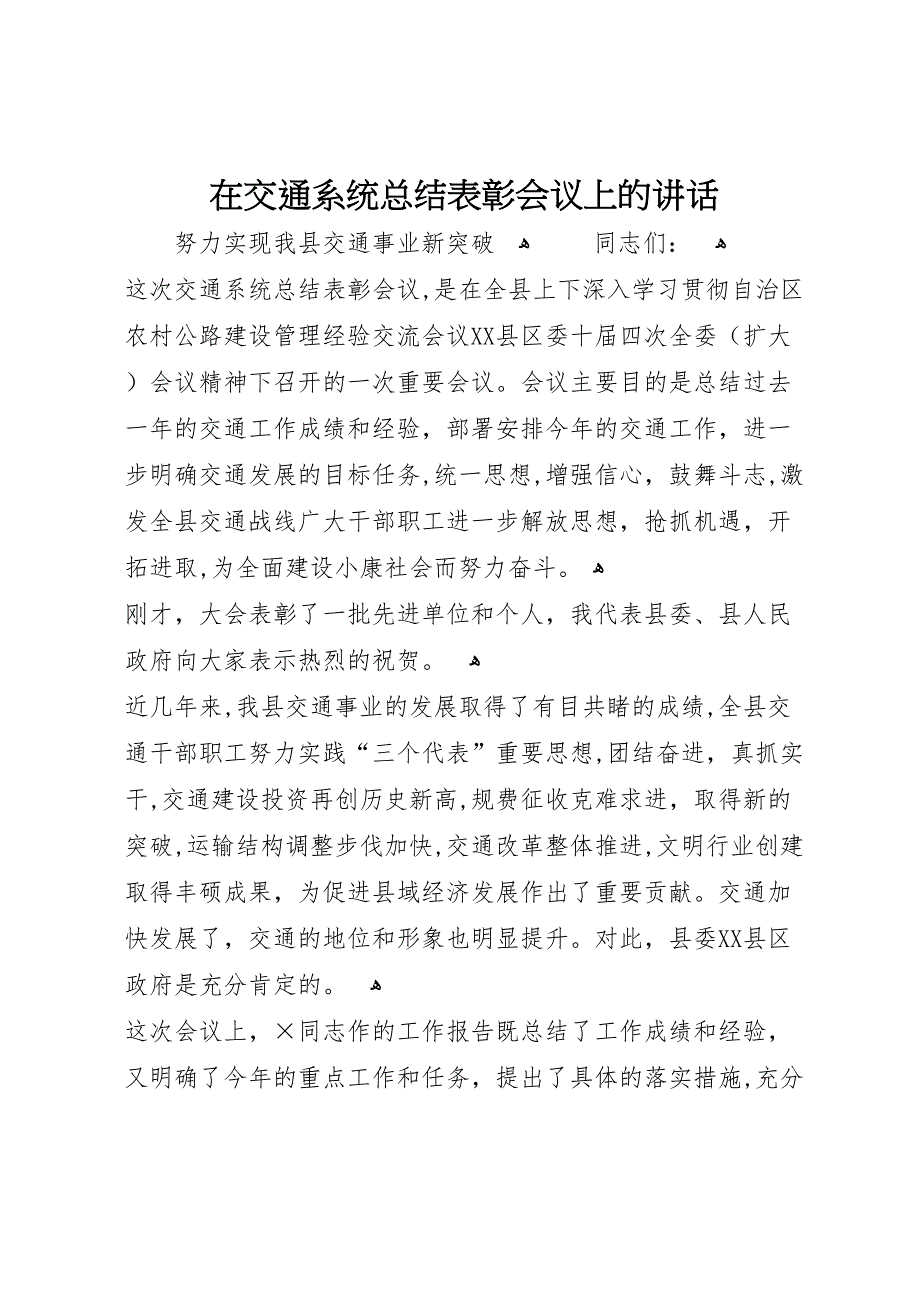 在交通系统总结表彰会议上的讲话
努力实现我县交通事业新突破 ﻫ 同志们： ﻫ
这次交通系统总结表彰会议,是在全县上下深入学习贯彻自治区
农村公路建设管理经验交流会议XX县区委十届四次全委（扩大
）会议精神下召开的一次重要会议。会议主要目的是总结过去
一年的交通工作成绩和经验，部署安排今年的交通工作，进一
步明确交通发展的目标任务,统一思想,增强信心，鼓舞斗志,激
发全县交通战线广大干部职工进一步解放思想，抢抓机遇，开
拓进取,为全面建设小康社会而努力奋斗。 ﻫ
刚才，大会表彰了一批先进单位和个人，我代表县委、县人民
政府向大家表示热烈的祝贺。 ﻫ
近几年来,我县交通事业的发展取得了有目共睹的成绩,全县交
通干部职工努力实践“三个代表”重要思想,团结奋进，真抓实
干,交通建设投资再创历史新高,规费征收克难求进，取得新的
突破,运输结构调整步伐加快,交通改革整体推进,文明行业创建
取得丰硕成果，为促进县域经济发展作出了重要贡献。交通加
快发展了，交通的地位和形象也明显提升。对此，县委XX县区
政府是充分肯定的。 ﻫ
这次会议上，×同志作的工作报告既总结了工作成绩和经验，
又明确了今年的重点工作和任务，提出了具体的落实措施,充分